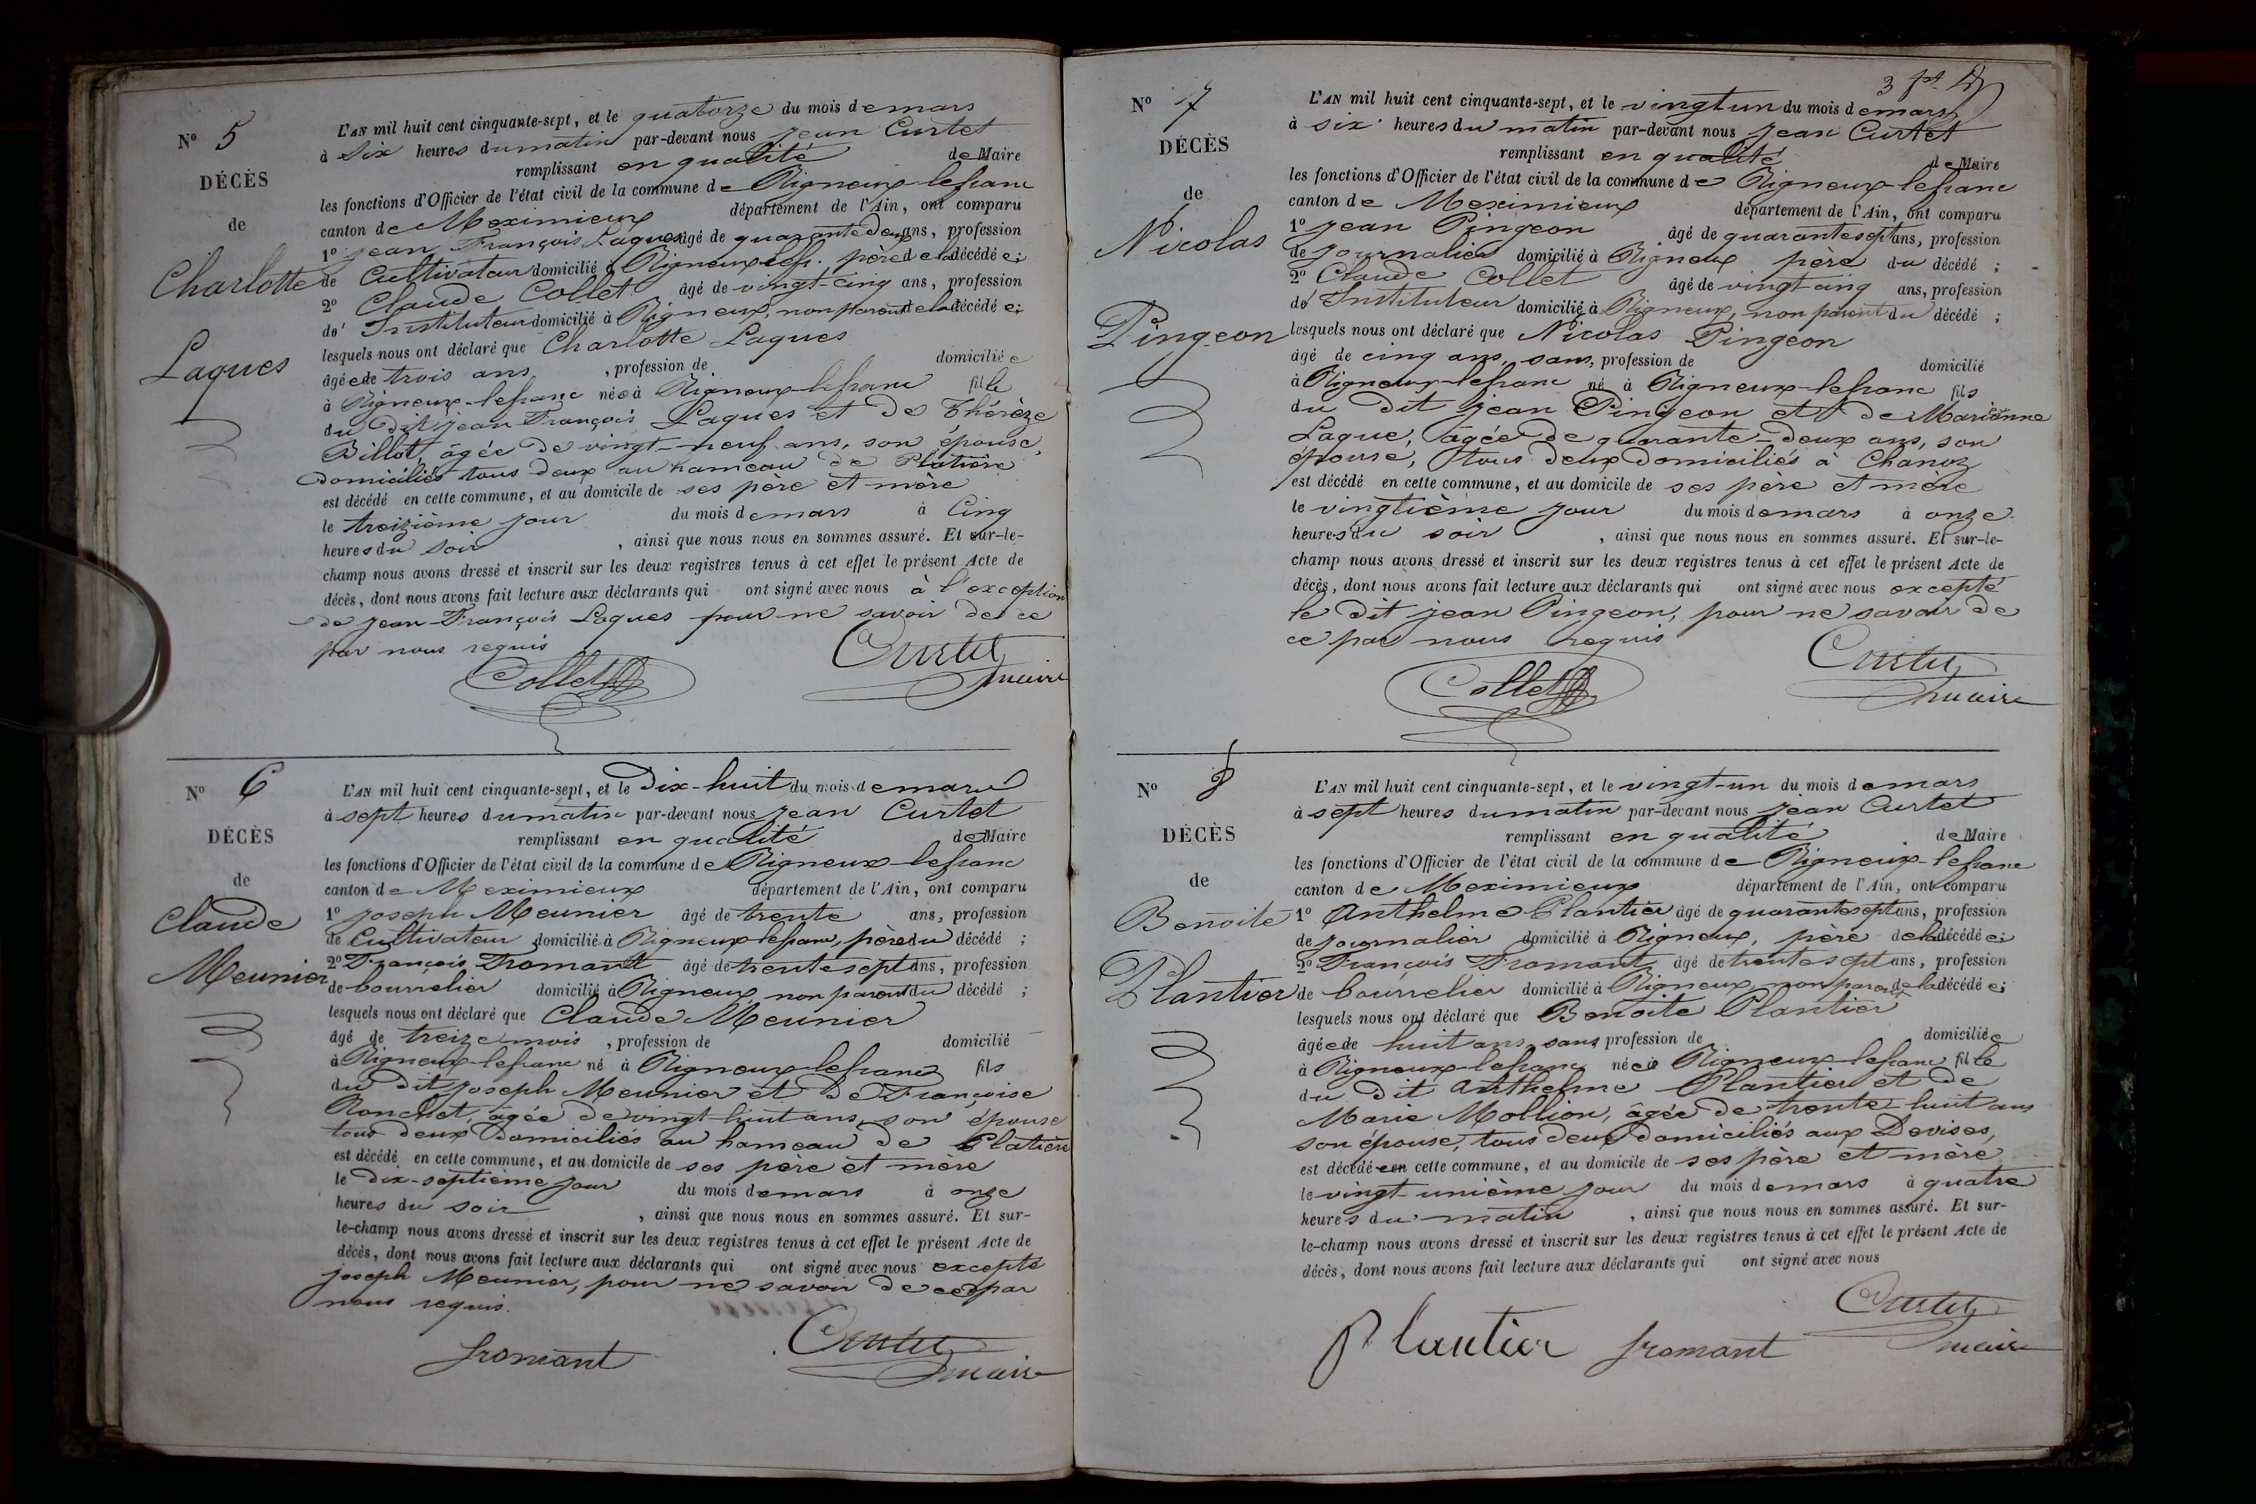 N° 5
DÉCÈS
de
Charlotte
Laques
L'AN mil huit cent cinquante-sept, et le quatorze du mois de mars
à six heures du matin par-devant nous jean Curtet
remplissant en qualité de Maire
les fonctions d'Officier de l'état civil de la commune de Rigneux-lefranc
canton de Meximieux département de l'Ain, ont comparu
1° jean François Laques âgé de quarante deux ans, profession
de Cultivateur domicilié à Rigneux lef. père de la décédée;
2° Claude Collet âgé de vingt-cinq ans, profession
de Instituteur domicilié à Rigneux, non parent de la décédée;
lesquels nous ont déclaré que Charlotte Laques
âgée de trois ans, profession de domiciliée
à Rigneux-lefranc née à Rigneux-lefranc fille
du dit jean François Laques et de Thérèze
Billot, âgée de vingt-neuf ans, son épouse,
domiciliés tous deux au hameau de Platière
est décédé en cette commune, et au domicile de ses père et mère
le treizième jour du mois de mars à Cinq
heures du soir, ainsi que nous nous en sommes assuré. Et sur-le-
champ nous avons dressé et inscrit sur les deux registres tenus à cet effet le présent Acte de
décès, dont nous avons fait lecture aux déclarants qui ont signé avec nous à l'exception
de jean-François Laques pour ne savoir de ce
par nous requis
Collet Curtet
maire
N° 6
DÉCÈS
de
Claude
Meunier
L'AN mil huit cent cinquante-sept, et le Dix-huit du mois de mars
à sept heures du matin par-devant nous jean Curtet
remplissant en qualité de Maire
les fonctions d'Officier de l'état civil de la commune de Rigneux-lefranc
canton de Meximieux département de l'Ain, ont comparu
1° joseph Meunier âgé de trente ans, profession
de Cultivateur domicilié à Rigneux-lefranc, père du décédé;
2° François Fromant âgé de trente sept ans, profession
de bourrelier domicilié à Rigneux, non parent du décédé;
lesquels nous ont déclaré que Claude Meunier
âgé de treize mois, profession de domicilié
à Rigneux-lefranc né à Rigneux-lefranc fils
du dit joseph Meunier et de Françoise
Ronchet, âgée de vingt-huit ans, son épouse
tous deux domiciliés au hameau de Platière
est décédé en cette commune, et au domicile de ses père et mère
le dix-septième jour du mois de mars à onze
heures du soir, ainsi que nous nous en sommes assuré. Et sur-
le-champ nous avons dressé et inscrit sur les deux registres tenus à cet effet le présent Acte de
décès, dont nous avons fait lecture aux déclarants qui ont signé avec nous excepté
joseph Meunier, pour ne savoir de ce par
nous requis.
fromant Curtet
maire
3
N° 7
DÉCÈS
de
Nicolas
Pingeon
L'AN mil huit cent cinquante-sept, et le vingt un du mois de mars
à six heures du matin par-devant nous jean Curtet
remplissant en qualité de Maire
les fonctions d'Officier de l'état civil de la commune de Rigneux-lefranc
canton de Meximieux département de l'Ain, ont comparu
1° jean Pingeon âgé de quarante sept ans, profession
de journalier domicilié à Rigneux père du décédé;
2° Claude Collet âgé de vingt cinq ans, profession
de Instituteur domicilié à Rigneux, non parent du décédé;
lesquels nous ont déclaré que Nicolas Pingeon
âgé de cinq ans, sans, profession de domicilié
à Rigneux-lefranc né à Rigneux-lefranc fils
du dit jean Pingeon et de Marianne
Laque, âgée de quarante-deux ans, son
épouse, tous deux domiciliés à Chanoz
est décédé en cette commune, et au domicile de ses père et mère
le vingtième jour du mois de mars à onze
heures du soir, ainsi que nous nous en sommes assuré. Et sur-le-
champ nous avons dressé et inscrit sur les deux registres tenus à cet effet le présent Acte de
décès, dont nous avons fait lecture aux déclarants qui ont signé avec nous excepté
le dit jean Pingeon, pour ne savoir de
ce par nous requis
Collet Curtet
maire
N° 8
DÉCÈS
de
Benoite
Plantier
L'AN mil huit cent cinquante-sept, et le vingt-un du mois de mars
à sept heures du matin par-devant nous jean Curtet
remplissant en qualité de Maire
les fonctions d'Officier de l'état civil de la commune de Rigneux-lefranc
canton de Meximieux département de l'Ain, ont comparu
1° Anthelme Plantier âgé de quarante sept ans, profession
de journalier domicilié à Rigneux, père de la décédée;
2° François Fromant âgé de trente sept ans, profession
de bourrelier domicilié à Rigneux, non parent de la décédée;
lesquels nous ont déclaré que Benoite Plantier
âgée de huit ans, sans profession de domiciliée
à Rigneux-lefranc née à Rigneux-lefranc fille
du dit Anthelme Plantier et de
Marie Mollion, âgée de trente-huit ans
son épouse, tous deux domiciliés aux Devises,
est décédée en cette commune, et au domicile de ses père et mère
le vingt-unième jour du mois de mars à quatre
heures du matin, ainsi que nous nous en sommes assuré. Et sur-
le-champ nous avons dressé et inscrit sur les deux registres tenus à cet effet le présent Acte de
décès, dont nous avons fait lecture aux déclarants qui ont signé avec nous
Plantier fromant Curtet
maire